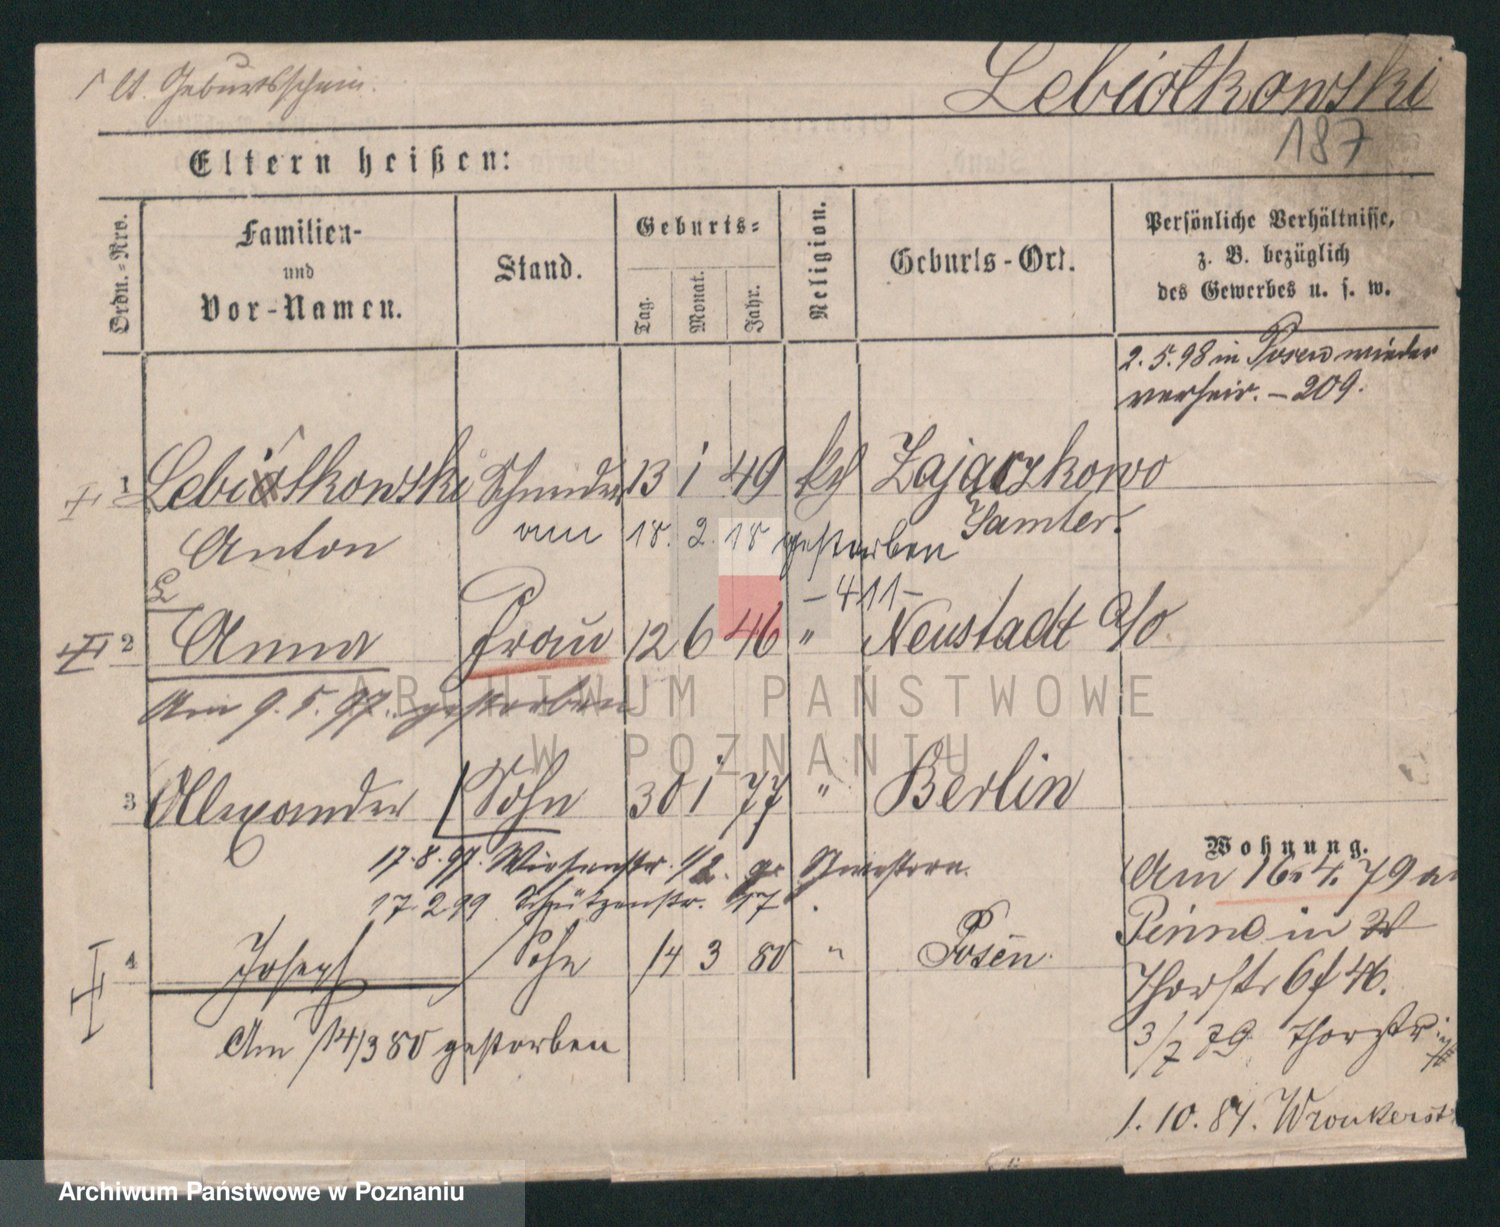 lt. Geburtsschein.
Lebiotkowski
187
Eltern heißen:
Ordn.-Nro.
Familien-
und
Vor-Namen.
Stand.
Geburts-
Tag.
Monat.
Jahr.
Religion.
Geburts-Ort.
Persönliche Verhältnisse,
z. B. bezüglich
des Gewerbes u. s. w.
2.5.98 in Posen wieder
verheir. – 209.
1 Lebiotkowski Schneider 13 1 49 kth Zajączkowo
Anton am 18. 2. 18 gestorben Samter.
– 411 –
2 Anna Frau 12 6 46 " Neustadt a/o
Am 9. 5. 97. gestorben
3 Alexander Sohn 30 1 77 " Berlin
17.8.97. Wiesenstr. 1/2
17.2.99 Schützenstr. 17
4 Joseph Sohn 14 3 80 " Posen.
Am 14/3 80 gestorben
Wohnung.
Am 16.4.79 a
Pinne in
Thorstr 6 f 46.
3/7 79 Thorstr
1. 10. 84. Wronkerst
ARCHIWUM PAŃSTWOWE
W POZNANIU
Archiwum Państwowe w Poznaniu